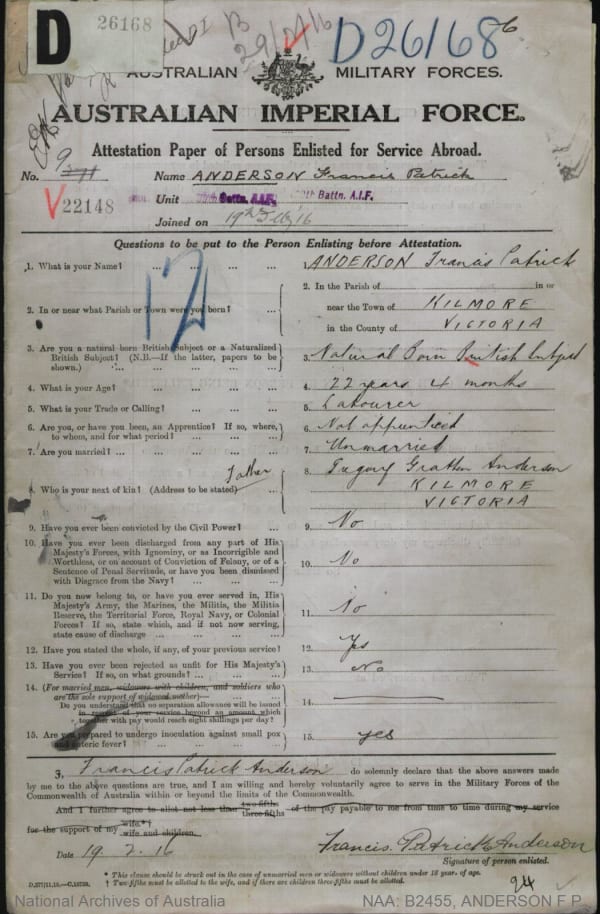 D 26168
D26168
29/2/16
AUSTRALIAN MILITARY FORCES.
AUSTRALIAN IMPERIAL FORCE.
Attestation Paper of Persons Enlisted for Service Abroad.
No. 9 Name ANDERSON Francis Patrick
V22148 Unit Battn. A.I.F. Battn. A.I.F.
Joined on 19th Feby 16
Questions to be put to the Person Enlisting before Attestation.
12
1. What is your Name? ... ... ... ... 1. ANDERSON Francis Patrick
2. In or near what Parish or Town were you born? 2. In the Parish of in or
near the Town of KILMORE
in the County of VICTORIA
3. Are you a natural born British Subject or a Naturalized
British Subject? (N.B.—If the latter, papers to be
shown.) ... ... ... ... 3. Natural Born British Subject
4. What is your Age? ... ... ... ... 4. 22 years 4 months
5. What is your Trade or Calling? ... ... ... 5. Labourer
6. Are you, or have you been, an Apprentice? If so, where,
to whom, and for what period? ... ... ... 6. Not apprenticed
7. Are you married? ... ... ... ... 7. Unmarried
Father
8. Who is your next of kin? (Address to be stated) 8. Gratton Anderson
KILMORE
VICTORIA
9. Have you ever been convicted by the Civil Power? ... 9. No
10. Have you ever been discharged from any part of His
Majesty's Forces, with Ignominy, or as Incorrigible and
Worthless, or on account of Conviction of Felony, or of a
Sentence of Penal Servitude, or have you been dismissed
with Disgrace from the Navy? ... ... ... 10. No
11. Do you now belong to, or have you ever served in, His
Majesty's Army, the Marines, the Militia, the Militia
Reserve, the Territorial Force, Royal Navy, or Colonial
Forces? If so, state which, and if not now serving,
state cause of discharge ... ... ... ... 11. No
12. Have you stated the whole, if any, of your previous service? 12. Yes
13. Have you ever been rejected as unfit for His Majesty's
Service? If so, on what grounds? ... ... ... 13. No
14. (For married men, widowers with children, and soldiers who
are the sole support of widowed mother)—
Do you understand that no separation allowance will be issued
in respect of your service beyond an amount which
together with pay would reach eight shillings per day? 14.
15. Are you prepared to undergo inoculation against small pox
and enteric fever? ... ... ... ... 15. yes
I, Francis Patrick Anderson do solemnly declare that the above answers made
by me to the above questions are true, and I am willing and hereby voluntarily agree to serve in the Military Forces of the
Commonwealth of Australia within or beyond the limits of the Commonwealth.
And I further agree to allot not less than two-fifths three-fifths of the pay payable to me from time to time during my service
for the support of my wife.*† wife and children.
Date 19.2.16 Francis. Patrick Anderson
Signature of person enlisted.
* This clause should be struck out in the case of unmarried men or widowers without children under 18 years of age.
† Two-fifths must be allotted to the wife, and if there are children three-fifths must be allotted.
94
National Archives of Australia NAA: B2455, ANDERSON F P